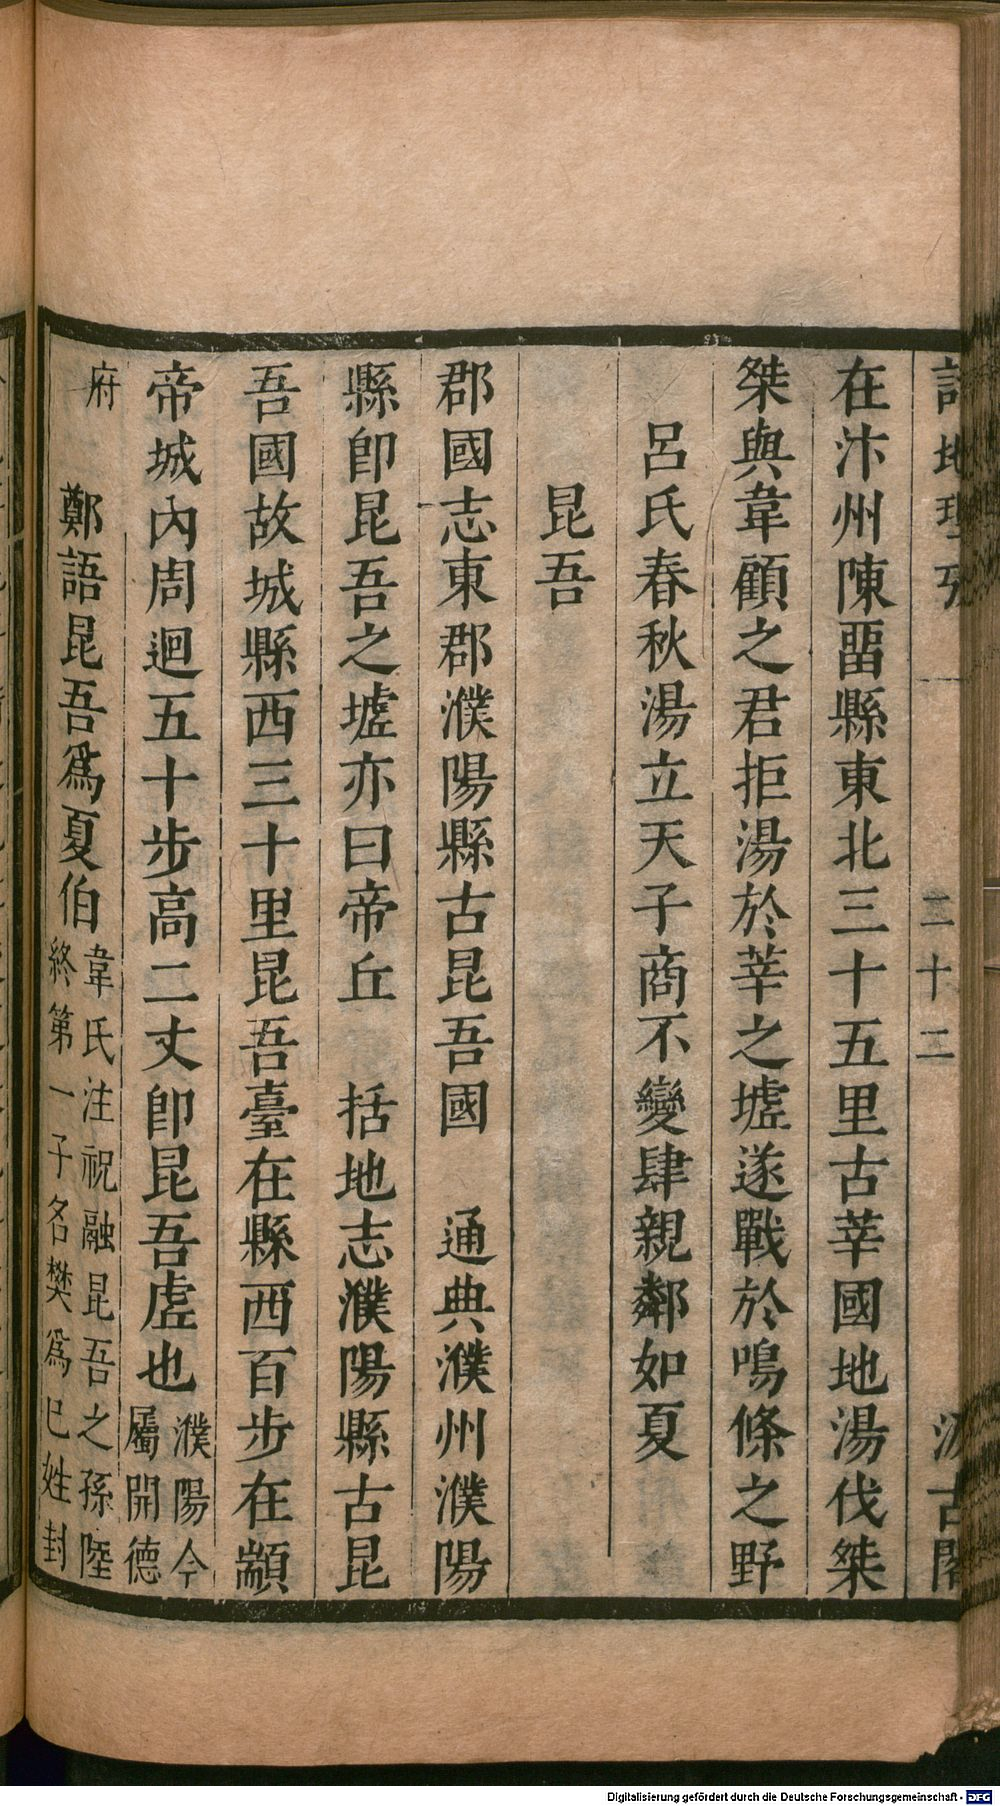 詩地理攷　一　二十二　汲古閣
在汴州陳畱縣東北三十五里古莘國地湯伐桀
桀與韋顧之君拒湯於莘之墟遂戰於鳴條之野
呂氏春秋湯立天子商不變肆親鄰如夏
昆吾
郡國志東郡濮陽縣古昆吾國　通典濮州濮陽
縣卽昆吾之墟亦曰帝丘　括地志濮陽縣古昆
吾國故城縣西三十里昆吾臺在縣西百步在顓
帝城內周迴五十步高二丈卽昆吾虛也濮陽今屬開德
府　鄭語昆吾爲夏伯韋氏注祝融昆吾之孫陸終第一子名樊爲巳姓封
Digitalisierung gefördert durch die Deutsche Forschungsgemeinschaft - DFG